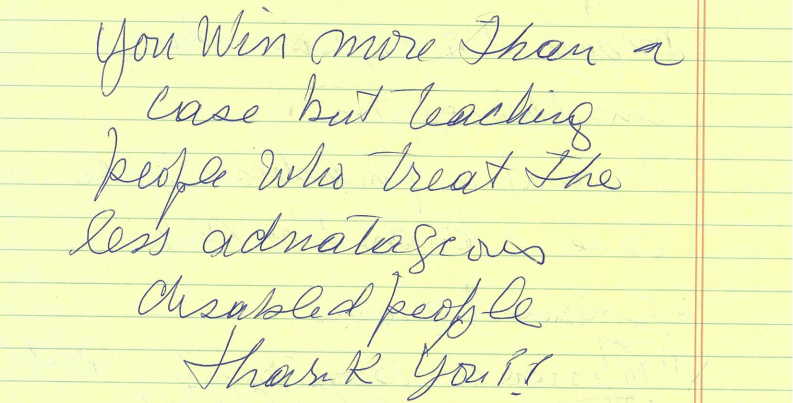 You Win more Than a
case but teaching
people who treat the
less adnatageous
disabled people
Thank You!!